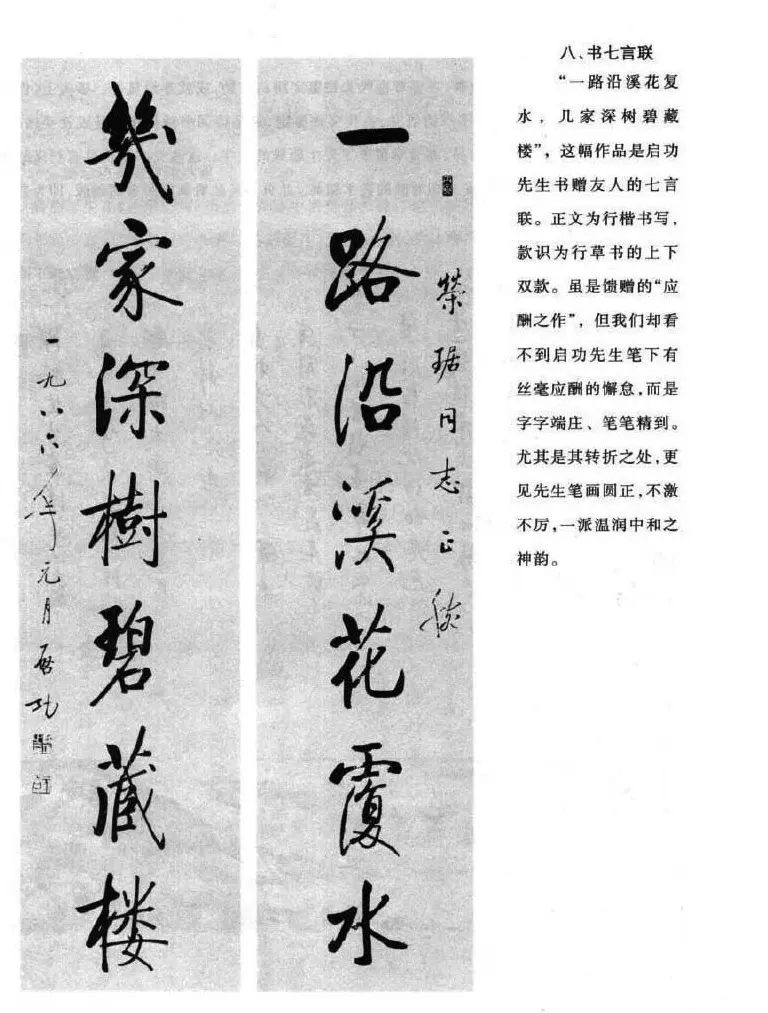 八、书七言联
“一路沿溪花复
水，几家深树碧藏
楼”，这幅作品是启功
先生书赠友人的七言
联。正文为行楷书写，
款识为行草书的上下
双款。虽是馈赠的“应
酬之作”，但我们却看
不到启功先生笔下有
丝毫应酬的懈怠，而是
字字端庄、笔笔精到。
尤其是其转折之处，更
见先生笔画圆正，不激
不厉，一派温润中和之
神韵。
榮琚同志正
一路沿溪花覆水
幾家深樹碧藏楼
一九八六年元月启功